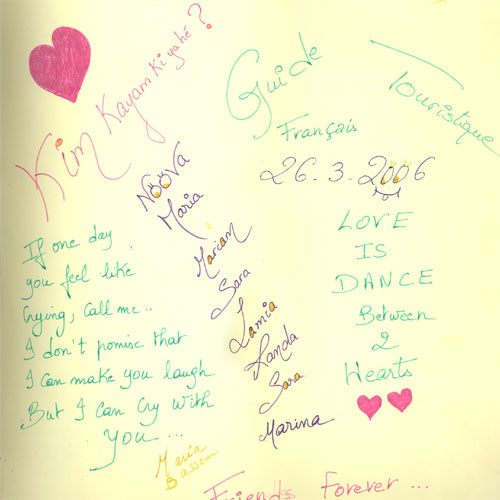 Kim
Kayam Ki yahé?
Guide
Touristique
Français
26-3-2006
NOOVA
Maria
Mariam
Sara
Lamia
Randa
Sara
Marina
If one day
you feel like
Crying, Call me..
I don't promise that
I can make you laugh
But I can Cry with
You...
LOVE
IS
DANCE
Between
2
Hearts
Maria
Bassem
Friends Forever...